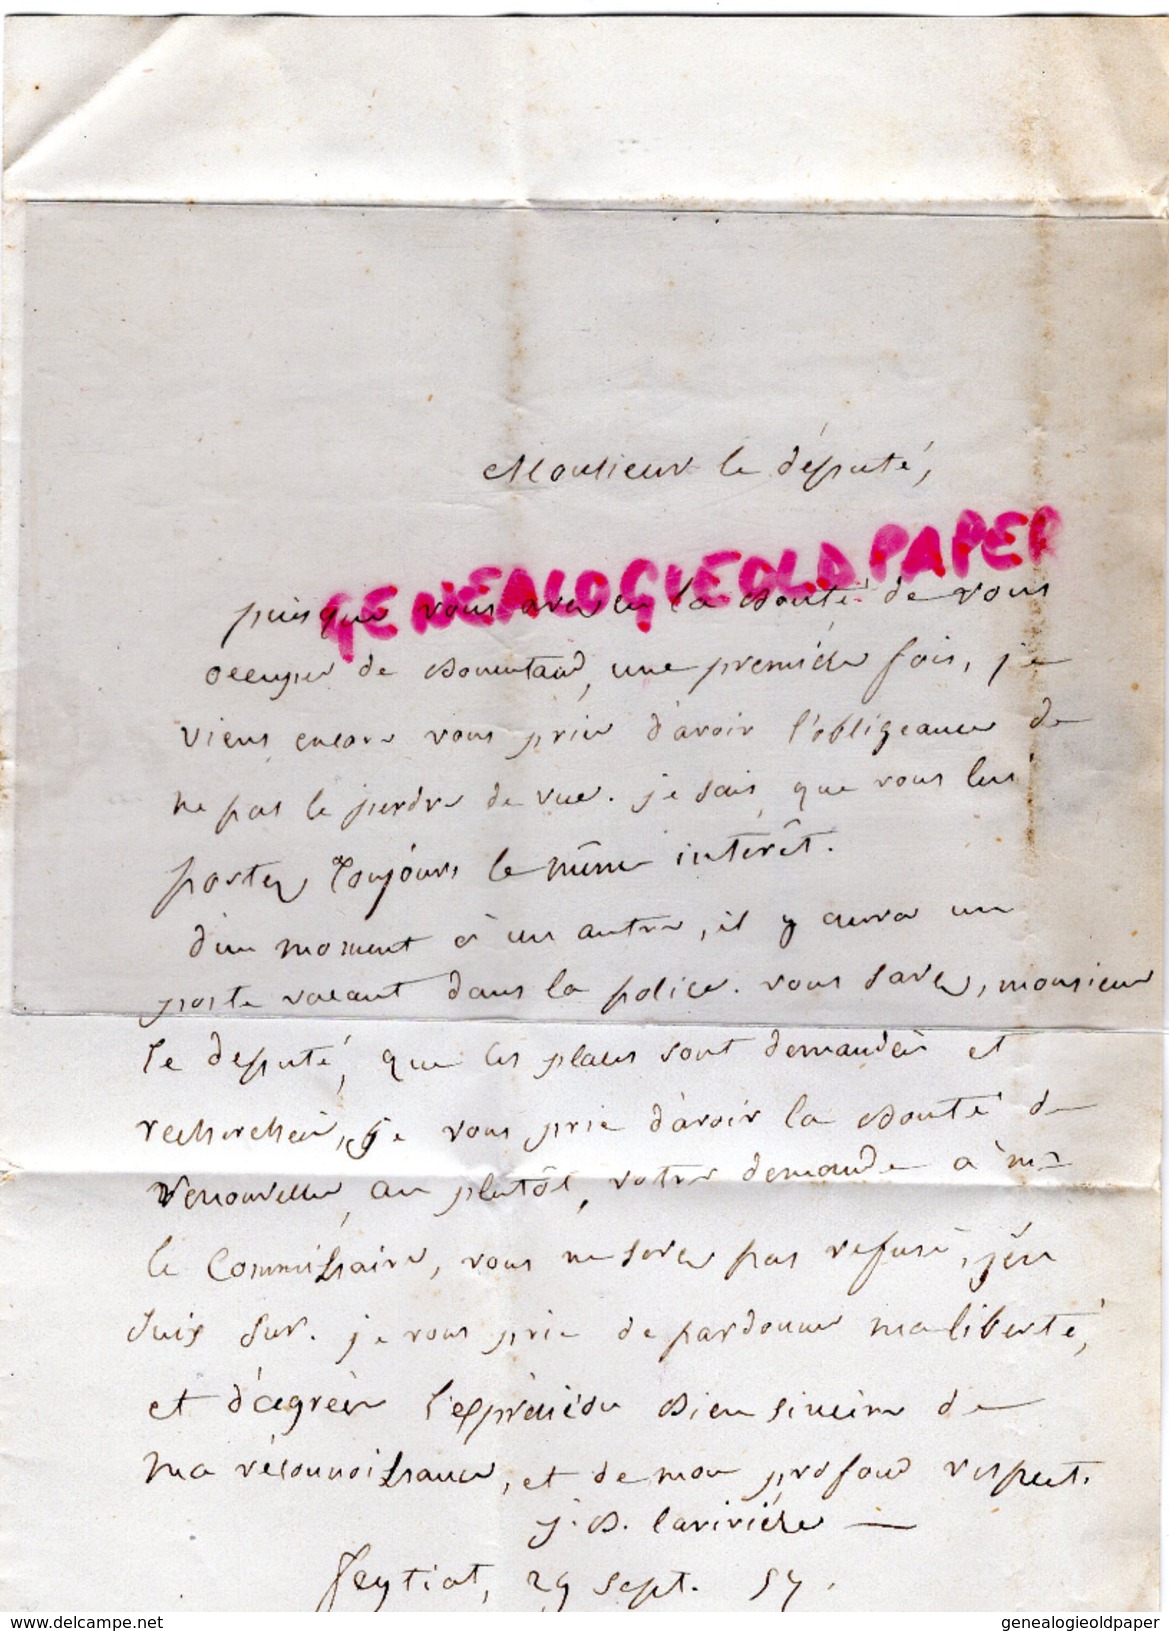 Monsieur le député,
GENEALOGIEOLDPAPER
puisque vous avez eu la bonté de vous
occuper de, une première fois, je
viens encore vous prier d'avoir l'obligeance de
ne pas le perdre de vue. je sais que vous lui
portez toujours le même intérêt.
d'un moment à un autre, il y aura un
poste vacant dans la police. vous savez, monsieur
le député, que les places sont demandées et
recherchées, je vous prie d'avoir la bonté de
renouveller, au plutôt, votre demande à mr
le Commissaire, vous ne serez pas refusé, j'en
suis sur. je vous prie de pardonner ma liberté,
et d'agréer l'expression bien sincère de
ma réconnoissance, et de mon profond respect.
j. B. lariviére
feytiat, 29 sept. 57.
www.delcampe.net
genealogieoldpaper